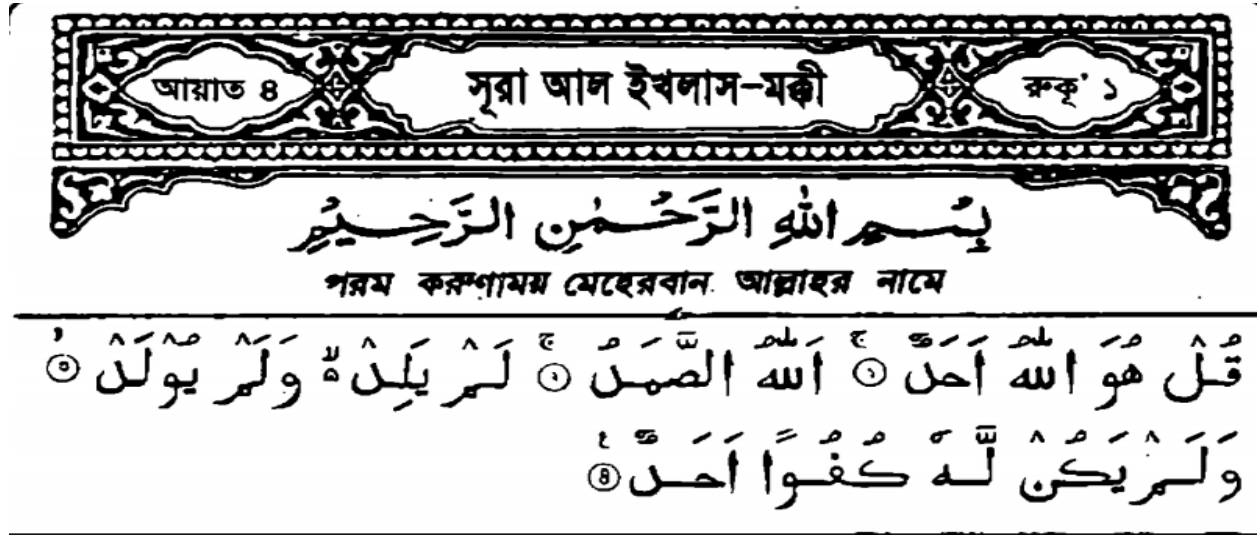 আয়াত ৪ সূরা আল ইখলাস-মক্কী রুকূ' ১
بِسْمِ اللهِ الرَّحْمٰنِ الرَّحِيْمِ
পরম করুণাময় মেহেরবান আল্লাহর নামে
قُلْ هُوَ اللهُ اَحَدٌ ۚ ① اَللهُ الصَّمَدُ ۚ ② لَمْ يَلِدْ ۙ وَلَمْ يُوْلَدْ ③
وَلَمْ يَكُنْ لَّهٗ كُفُوًا اَحَدٌ ④